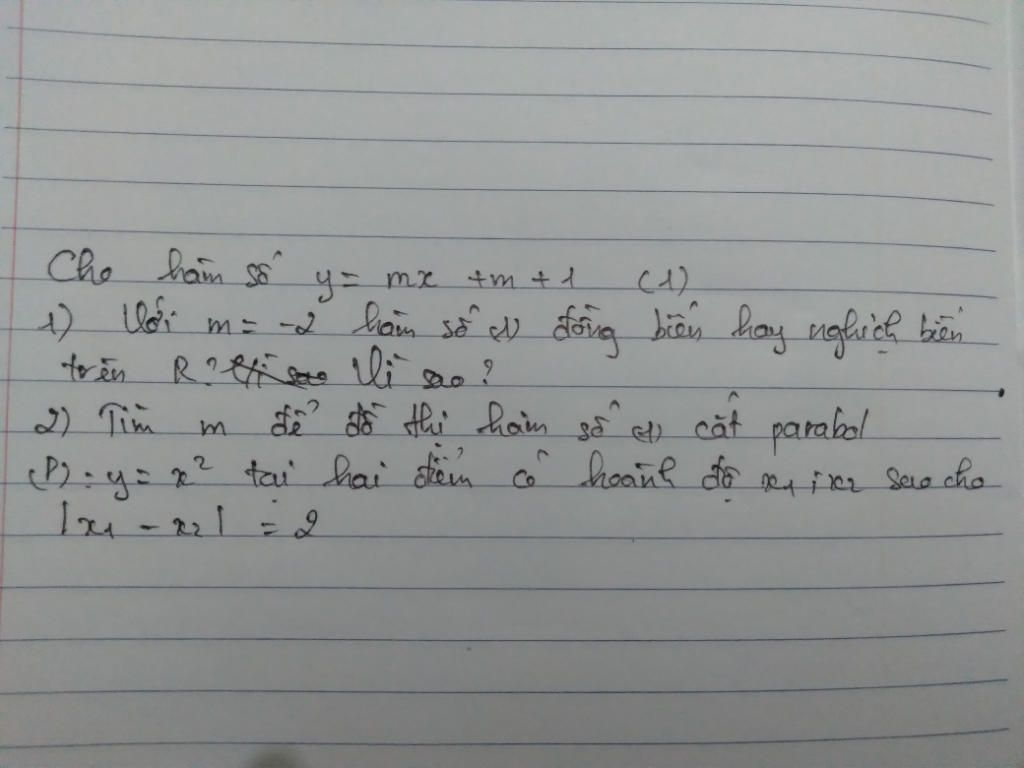 Cho hàm số y = mx + m + 1 (1)
1) Với m = -2 hàm số (1) đồng biến hay nghịch biến
trên R? Vì sao?
2) Tìm m để đồ thị hàm số (1) cắt parabol
(P): y = x² tại hai điểm có hoành độ x₁; x₂ sao cho
|x₁ - x₂| = 2